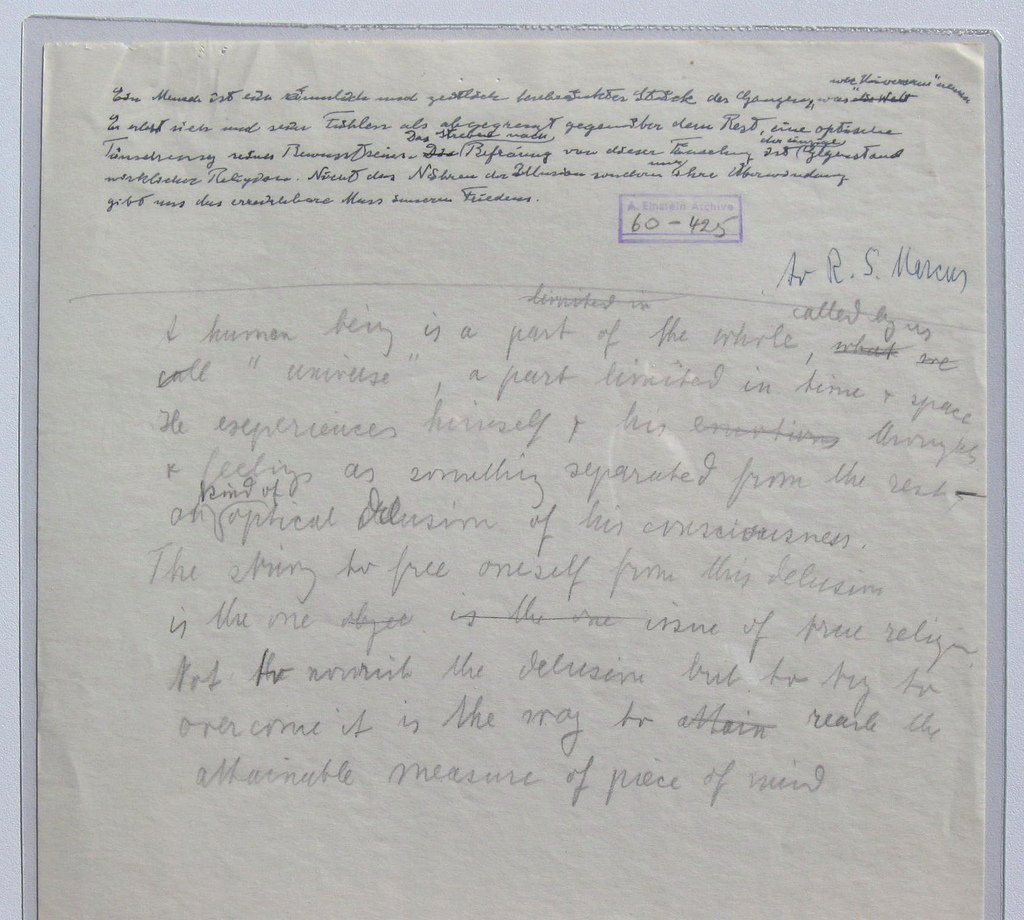 wir "Universum" nennen
Ein Mensch ist ein räumlich und zeitlich beschränktes Stück des Ganzen, was "die Welt
Er erlebt sich und sein Fühlen als abgegrenzt gegenüber dem Rest, eine optische
Das Streben nach der einzige
Täuschung seines Bewusstseins. Das Befreiung von dieser Täuschung ist Gegenstand
nur
wirklicher Religion. Nicht das Nähren der Illusion sondern ihre Überwindung
gibt uns das erreichbare Mass inneren Friedens.
A. Einstein Archive
60-425
to R. S. Marcus
limited in called by us
A human being is a part of the whole, what we
call "universe", a part limited in time + space
He experiences himself + his emotions thoughts
+ feelings as something separated from the rest –
kind of
an optical delusion of his consciousness.
The striving to free oneself from this delusion
is the one objec is the one issue of true religion
Not to nourish the delusion but to try to
overcome it is the way to attain reach the
attainable measure of piece of mind